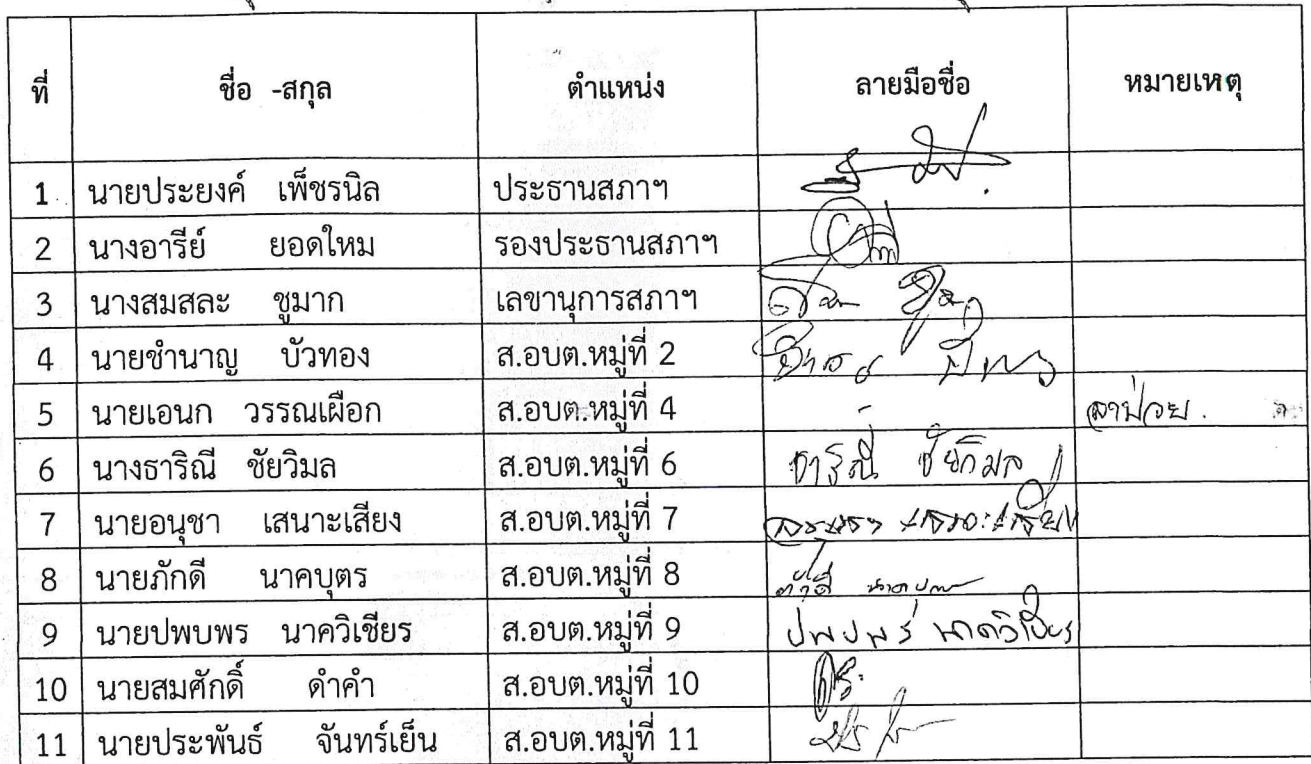 ที่ ชื่อ -สกุล ตำแหน่ง ลายมือชื่อ หมายเหตุ
1 นายประยงค์ เพ็ชรนิล ประธานสภาฯ
2 นางอารีย์ ยอดใหม รองประธานสภาฯ
3 นางสมสละ ชูมาก เลขานุการสภาฯ
4 นายชำนาญ บัวทอง ส.อบต.หมู่ที่ 2
5 นายเอนก วรรณเผือก ส.อบต.หมู่ที่ 4 - ลาป่วย.
6 นางธาริณี ชัยวิมล ส.อบต.หมู่ที่ 6
7 นายอนุชา เสนาะเสียง ส.อบต.หมู่ที่ 7
8 นายภักดี นาคบุตร ส.อบต.หมู่ที่ 8 ภักดี นาคบุตร
9 นายปพบพร นาควิเชียร ส.อบต.หมู่ที่ 9 ปพบพร นาควิเชียร
10 นายสมศักดิ์ ดำคำ ส.อบต.หมู่ที่ 10
11 นายประพันธ์ จันทร์เย็น ส.อบต.หมู่ที่ 11